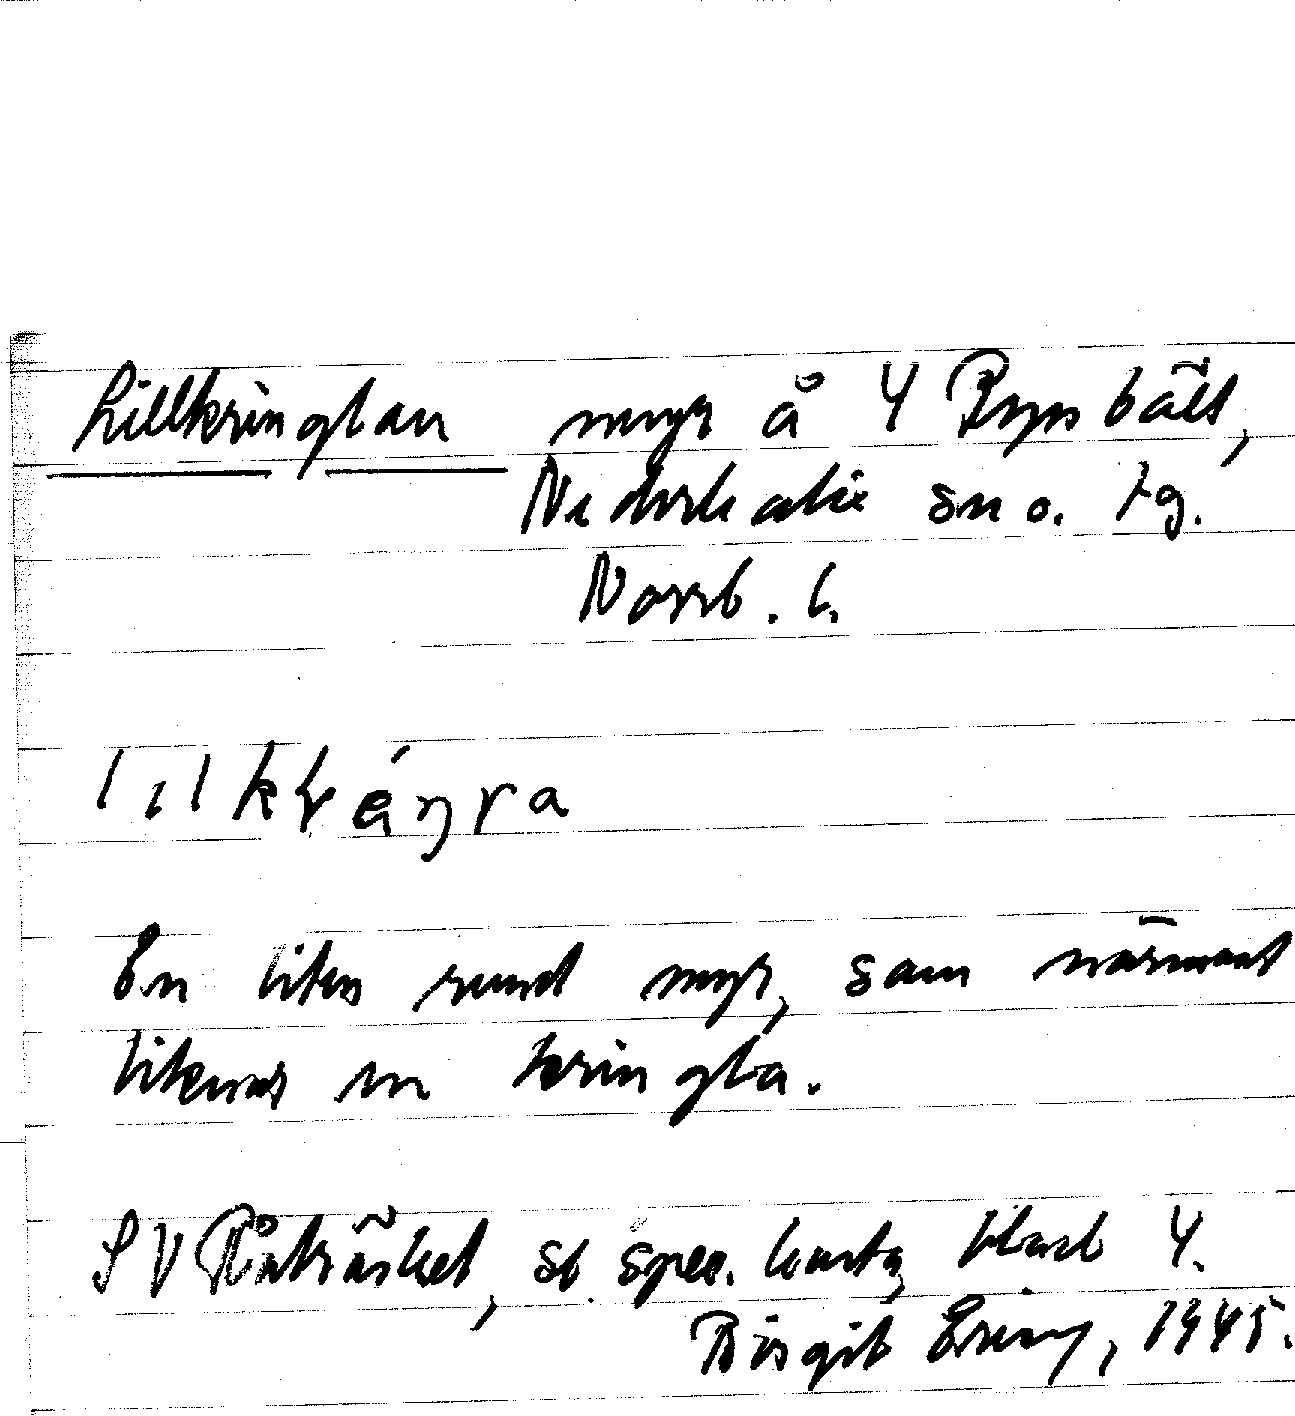 Lillkringlan myr å Y Ryssbält,
Nederkalix sn o. tg.
Norrb. l.
lılkréŋra
En liten rund myr, som närmast
liknar en kringla.
SV Råträsket, se spec. karta, blad Y.
Birgit 1945.